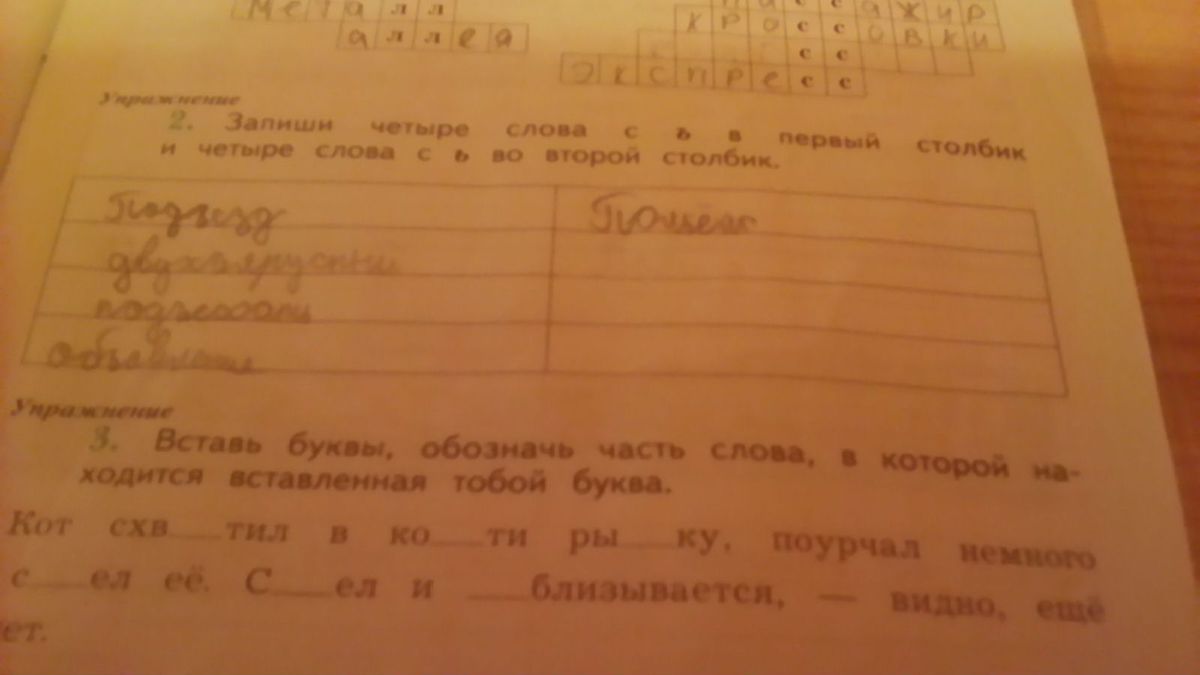 метал л
алле я
пассажир
кроссовки
с с
экспресс
Упражнение
2. Запиши четыре слова с ъ в первый столбик
и четыре слова с ь во второй столбик.
Подъезд
двухъярусный
подъехали
объявление
Упражнение
3. Вставь буквы, обозначь часть слова, в которой на-
ходится вставленная тобой буква.
Кот схв__тил в ко__ти ры__ку, поурчал немного
с__ел её. С__ел и __близывается, — видно, ещё
ет.